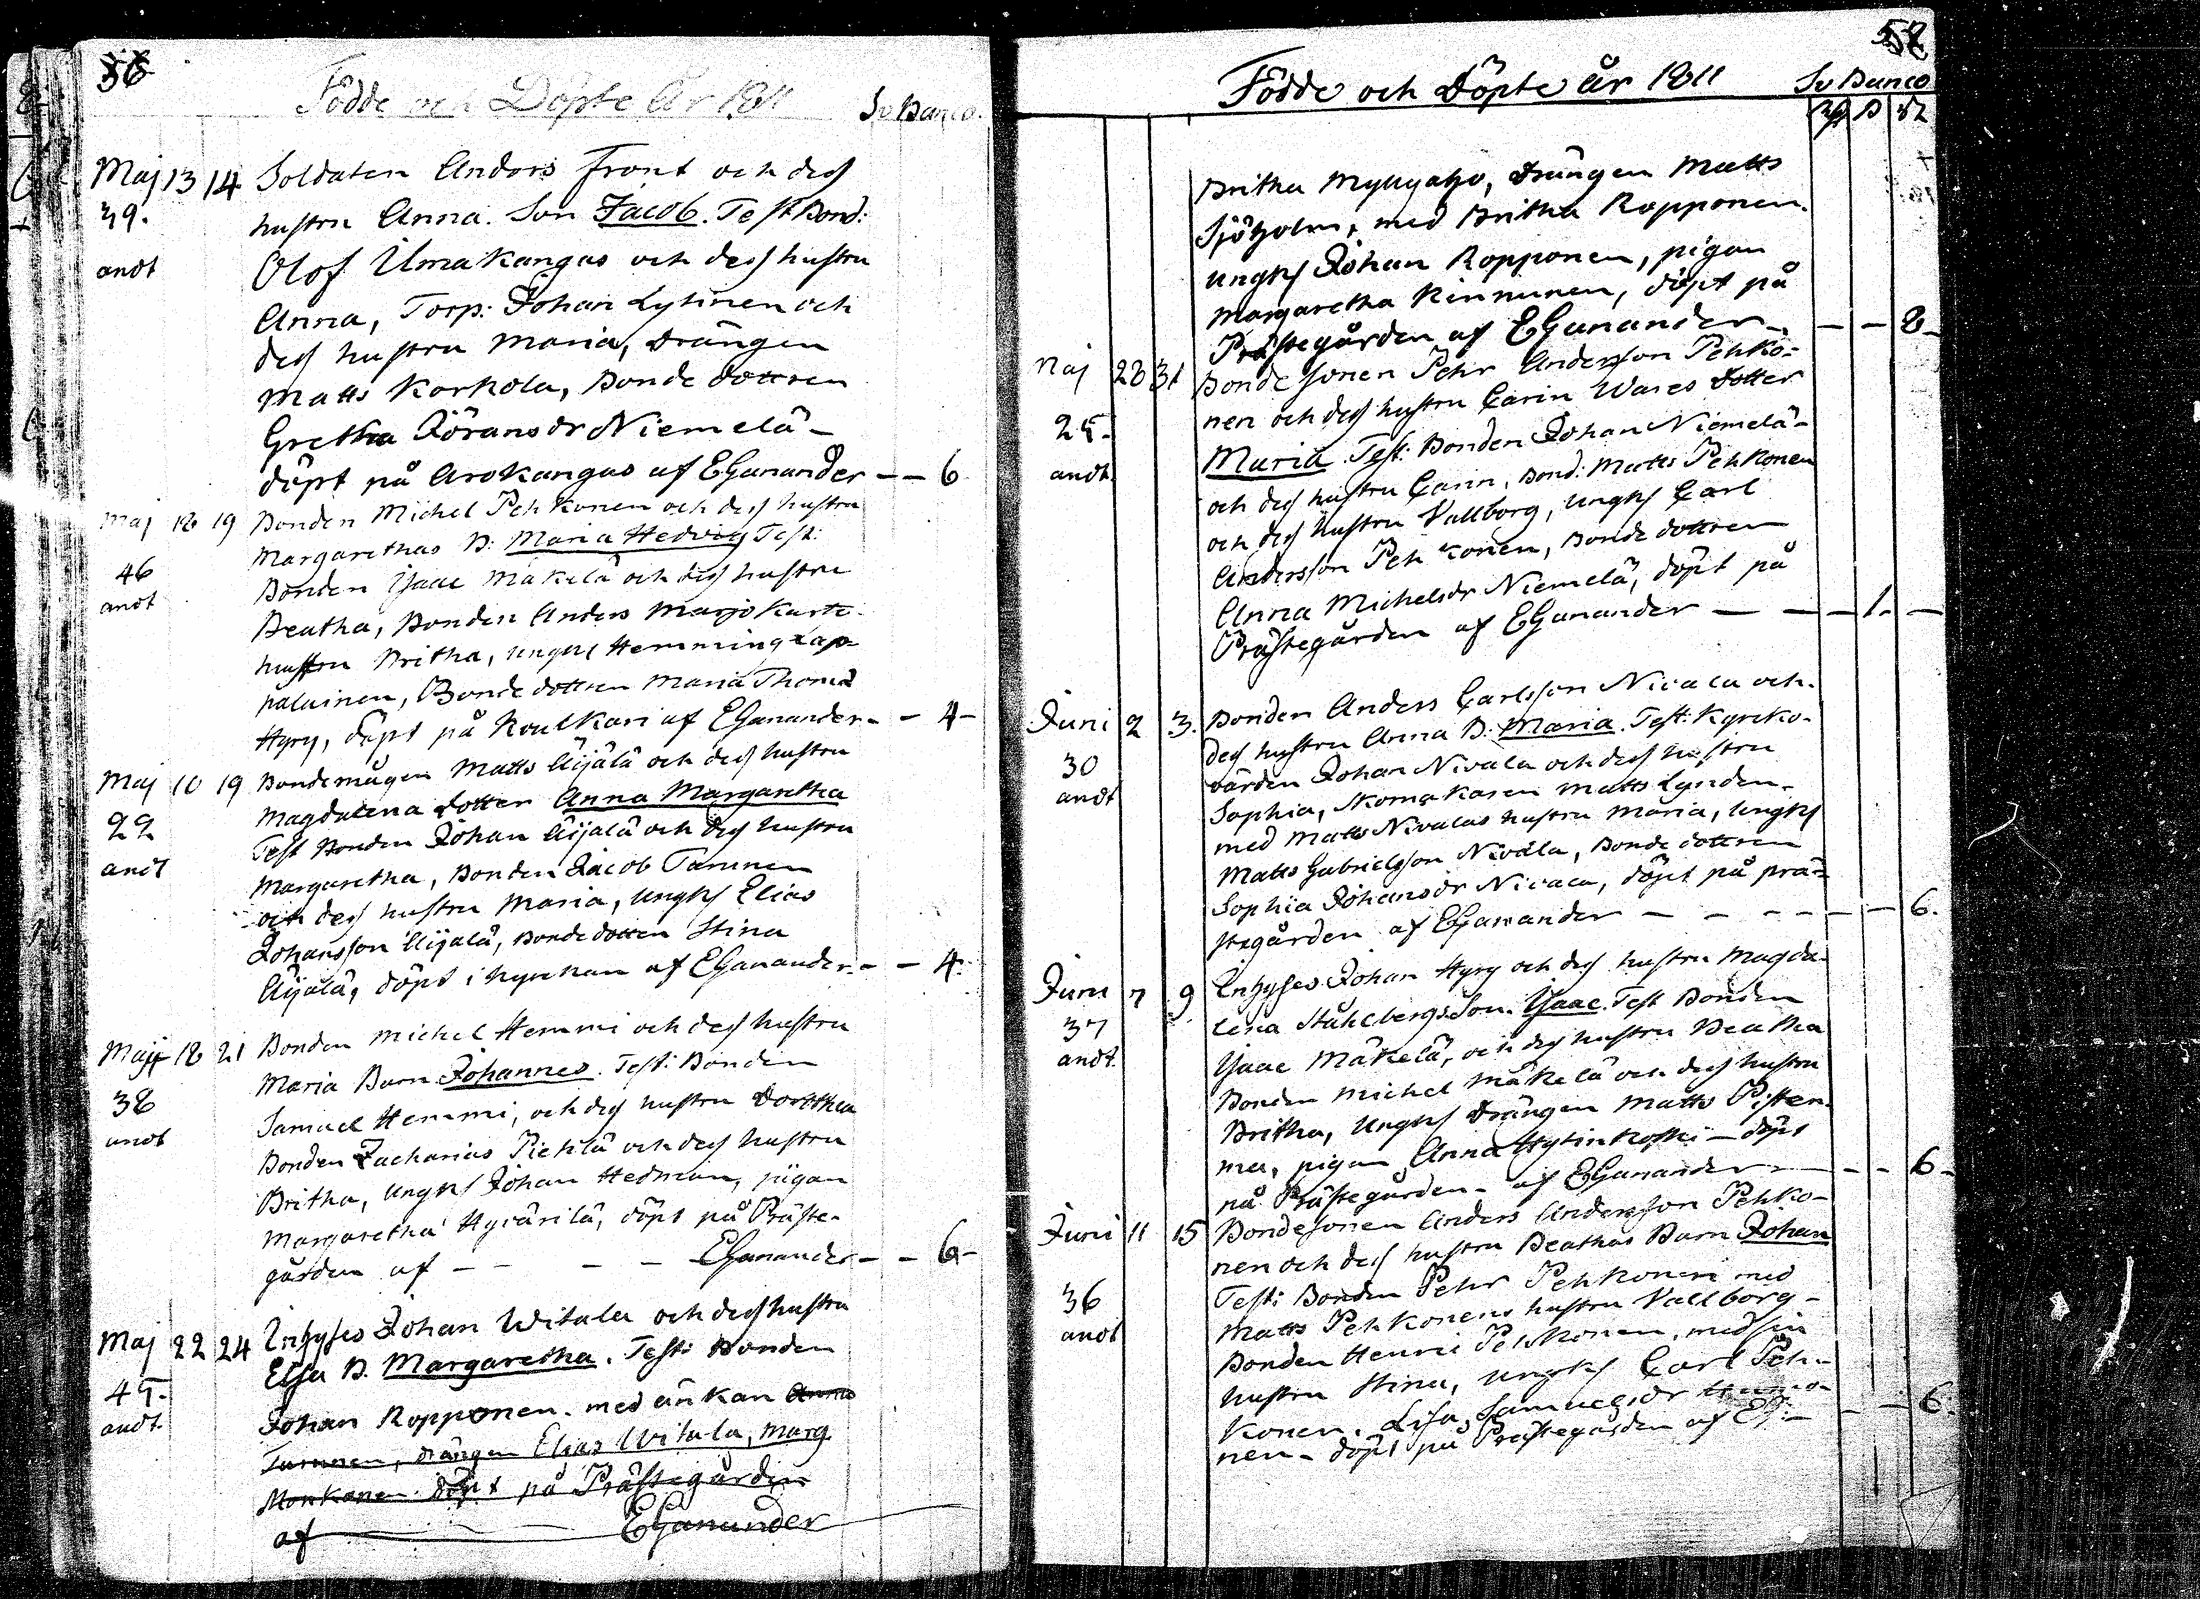 36
Födde och Döpte År 1811 Sv Banco.
Maj 13 14 Soldaten Anders Front och dess
39. hustru Anna. Son Jacob. Test Bond:
andt Olof Ulmakangas och dess hustru
Anna, Torp: Johan Lytinen och
dess hustru Maria, Drängen
Matts Korkola, Bonde dottren
Gretha Jöransdr Niemelä –
döpt på Arokangas af EGanander – – 6
Maj 18 19 Bonden Michel Pehkonen och dess hustru
Margarethas B: Maria Hedvig Test:
46 Bonden Isaac Mäkelä och dess hustru
andt Beatha, Bonden Anders Marjokarte
hustru Britha, ungks Hemming Lap=
palainen, Bonde dottren Maria Thomæ
Hyry, döpt på Koulkari af EGanander – – 4 –
Maj 16 19 Bondemågen Matts Äijälä och dess hustru
Magdalena Dotter Anna Margaretha
22 Test Bonden Johan Äijälä och dess hustru
andt Margaretha, Bonden Jacob Tamnen
och dess hustru Maria, ungks Elias
Johansson Äijälä, Bonde dottren Stina
Äijälä, döpt i kyrckan af EGanander. – – 4.
Maj 18 21 Bonden Michel Hemmi och dess hustru
Maria Barn Johannes. Test: Bonden
38 Samuel Hemmi, och dess hustru Dorthea
andt Bonden Zacharias Pietilä och dess hustru
Britha, ungks Johan Hedman, pigan
Margaretha Hyvärilä, döpt på Präste-
gården af – – – – EGanander – – 6 –
Maj 22 24 Inhyses Johan Witala och dess hustru
Elsa B. Margaretha. Test: Bonden
45. Johan Ropponen. med änkan Anna
andt. Tamnen, drängen Elias Witala, Marg
Monkanen. döpt på Prästegården
af EGanander
Födde och Döpte år 1811 Sv Banco
Britha Myllyaho, Drängen Matts
Sjöholm, med Britha Ropponen.
ungks Johan Ropponen, pigan
Margaretha Kinnunen, döpt på
Prästegården af EGanander – – – 8 –
Maj 28 31 Bonde sonen Pehr Andersson Pehko=
nen och dess hustru Carin Wares Dotter
25. Maria. Test: Bonden Johan Niemelä –
andt. och dess hustru Carin, Bond: Matts Pehkonen
och dess hustru Vallborg, ungks Carl
Andersson Pehkonen, Bonde dottren
Anna Michelsdr Niemelä, döpt på
Prästegården af EGanander – – – 1. –
Juni 2 3. Bonden Anders Carlsson Nivala och
dess hustru Anna B: Maria. Test: Kyrcko-
30 värden Johan Nivala och dess hustru
andt Sophia, Skomakaren Matts Lynden –
med Matts Nivalas hustru Maria, ungks
Matts Gabrielsson Nivala, Bonde dottren
Sophia Johansdr Nivala, döpt på prä=
stegården af EGanander – – – – – – 6.
Juni 7 9 Inhyses Johan Hyry och dess hustru Magda-
lena Ståhlbergs Son. Isaac. Test Bonden
37 Isaac Mäkelä, och dess hustru Beatha
andt. Bonden Michel Mäkelä och dess hustru
Britha, ungks Drängen Matts Pisten-
ma, pigan Anna Hytinkoski – döpt
på Prästegården – af EGanander – – – 6 –
Juni 11 15 Bondesonen Anders Andersson Pehko-
nen och dess hustru Beathas Barn Johan
36 Test: Bonden Pehr Pehkonen med
andt Matts Pehkonens hustru Vallborg –
Bonden Henric Pehkonen, med sin
hustru Stina, ungks Carl Peh-
konen. Lisa Samuelsdr
nen – döpt på Prestegården af EG: – – – 6.